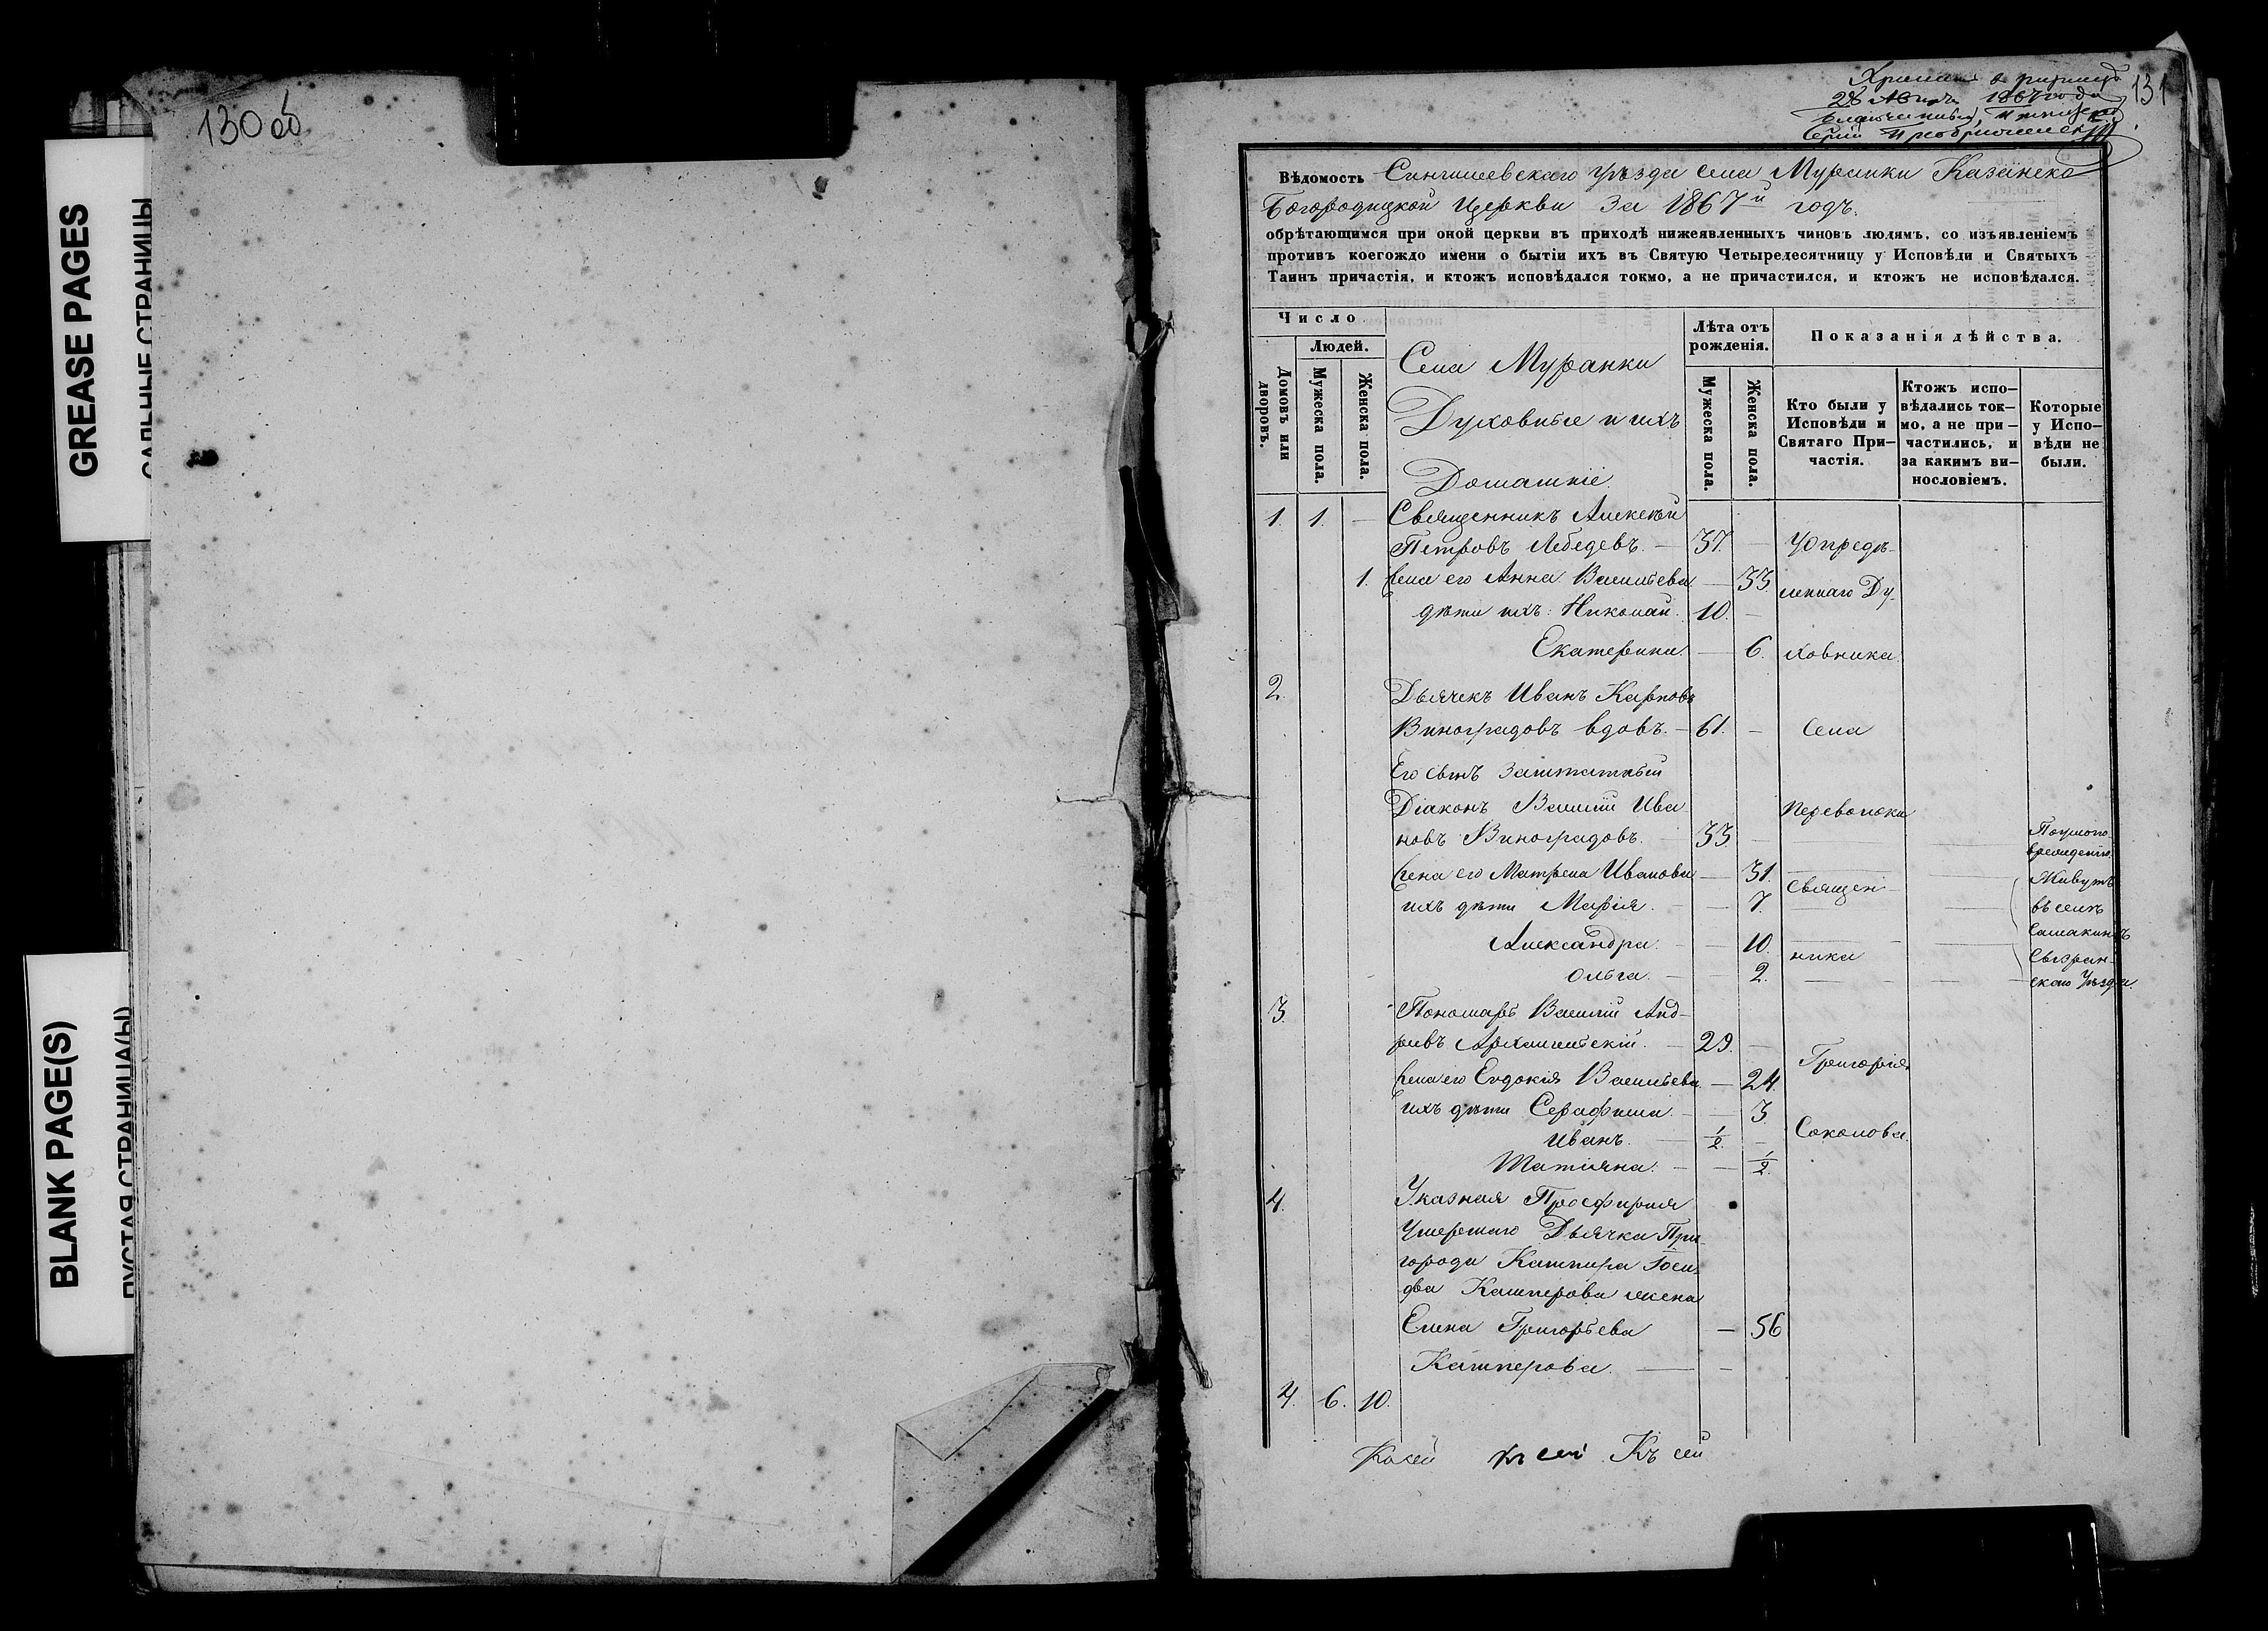 130 об
GREASE PAGES
САЛЬНЫЕ СТРАНИЦЫ
BLANK PAGE(S)
ПУСТАЯ СТРАНИЦА(Ы)
131
1867 года
Вѣдомость Сингилеевскаго уѣзда села Муранки Казанско
Богородицкой Церкви За 1867й годъ.
обрѣтающимся при оной церкви въ приходѣ нижеявленныхъ чиновъ людямъ, со изъявленіемъ
противъ коегождо имени о бытіи ихъ въ Святую Четыредесятницу у Исповѣди и Святыхъ
Таинъ причастія, и ктожъ исповѣдался токмо, а не причастился, и ктожъ не исповѣдался.
Число
Домовъ или дворовъ.
Людей.
Мужеска пола.
Женска пола.
Села Муранки
Духовные и ихъ
Домашніе.
Лѣта отъ рожденія.
Мужеска пола.
Женска пола.
Показанія дѣйства.
Кто были у Исповѣди и Святаго При-частія.
Ктожъ испо-вѣдались ток-мо, а не при-частились, и за какимъ ви-нословіемъ.
Которые у Испо-вѣди не были.
1. 1. — Священникъ Алексѣй
Петровъ Лебедевъ. — 37. — У опредѣ-
1. Жена его Анна Васильева — 33. леннаго Ду-
дѣти ихъ: Николай. 10. —
Екатерина. — 6. ховника
2. Дьячекъ Иванъ Карповъ
Виноградовъ вдовъ. — 61. — Села
Его сынъ Заштатный
Діаконъ Василій Ива Переволоки
новъ Виноградовъ. — 33. —
Жена его Матрена Иванова — 31. Священ- Живутъ
ихъ дѣти Марія. — — 7. въ селѣ
Александра. — — 10. ника
Ольга. — — 2. Сызран-
скаго Уѣзда.
3. Пономарь Василій Анд-
ревъ Архангельскій. — 29. — Григорія
Жена его Евдокія Васильева. — 24.
ихъ дѣти Серафима. — — 3.
Иванъ. — 1/2. — Соколова.
Татіяна. — — 1/2.
4. Указная Просфирня
Умершаго Дьячка При-
города Кашпира
Кашперова жена
Елена Григорьева — 56
Кашперова. — —
4. 6. 10.
Къ сей Къ сей